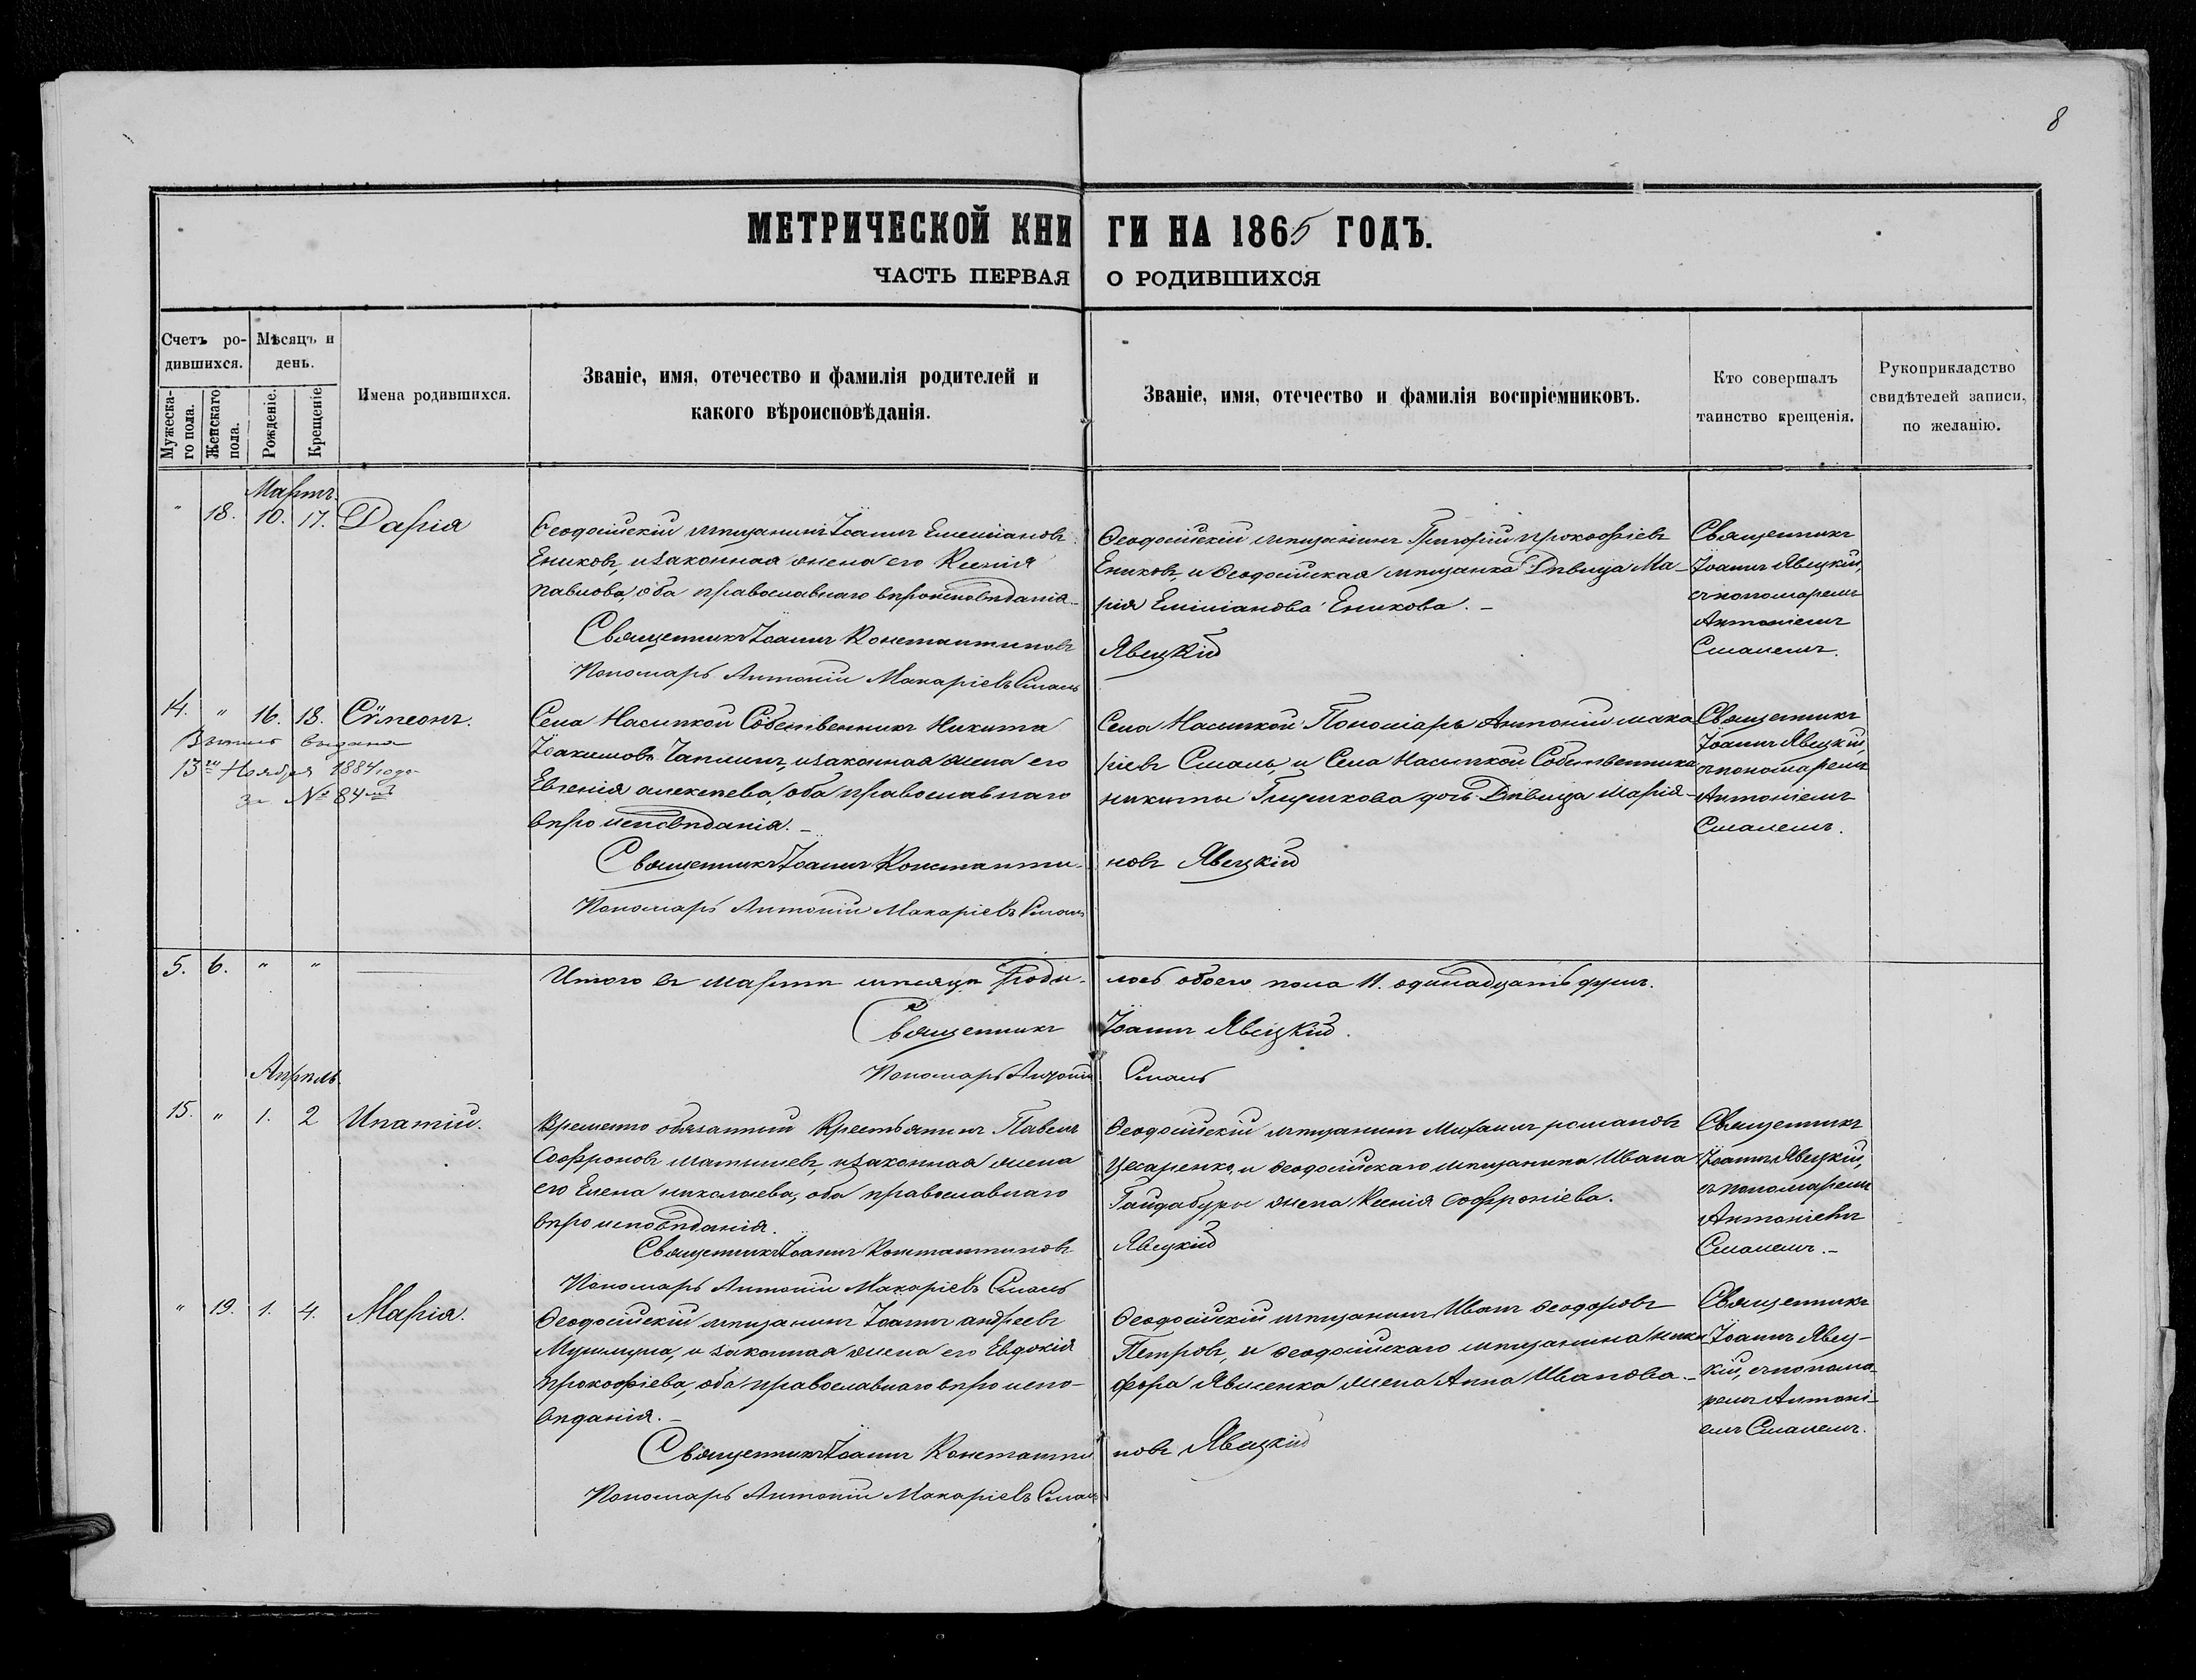 8
МЕТРИЧЕСКОЙ КНИ ГИ НА 1865 ГОДЪ.
ЧАСТЬ ПЕРВАЯ О РОДИВШИХСЯ
Счетъ ро-
дившихся.
Мѣсяцъ и
день.
Мужеска-
го пола.
Женскаго
пола.
Рожденіе.
Крещеніе
Имена родившихся.
Званіе, имя, отечество и фамилія родителей и
какого вѣроисповѣданія.
Званіе, имя, отечество и фамилія воспріемниковъ.
Кто совершалъ
таинство крещенія.
Рукоприкладство
свидѣтелей записи,
по желанію.
Мартъ.
" 18. 10. 17. Дарія
Ѳеодосійскій мѣщанинъ Іоаннъ Емиліановъ
Ениковъ, и законная жена его Ксенія
павлова, оба православнаго вѣроисповѣданія
Священникъ Іоаннъ Константиновъ
Пономарь Антоній Макаріевъ Смаль
Ѳеодосійскій мѣщанинъ Григорій прокофіевъ
Ениковъ, и Ѳеодосійская мѣщанка Дѣвица Ма-
рія Емиліанова Еникова. -
Явецкій
Священникъ
Іоаннъ Явецкій,
съ пономаремъ
Антоніемъ
Смалемъ.
14. " 16. 18. Сѵмеонъ.
выдана
13го Ноября 1884 года
за № 84мъ
Села Насыпкой Собственникъ Никита
Іоакимовъ Чаплинъ, и законная жена его
Евгенія алексѣева, оба православнаго
вѣроисповѣданія. -
Священникъ Іоаннъ Константи-
Пономарь Антоній Макаріевъ Смаль
Села Насыпкой Пономарь Антоній мака
ріевъ Смаль, и Села Насыпкой Собственника
никиты дочь Дѣвица Марія -
новъ Явецкій
Священникъ
Іоаннъ Явецкій,
съ пономаремъ
Антоніемъ
Смалемъ.
5. 6. " "
Итого въ мартѣ мѣсяцѣ роди-
лось обоего пола 11. одинадцать душъ.
Священникъ Іоаннъ Явецкій.
Пономарь Антоній Смаль
Апрѣль
15. " 1. 2 Ипатій.
Временно обязанный Крестьянинъ Павелъ
Софроновъ и законная жена
его Елена николаева, оба православнаго
вѣроисповѣданія.
Священникъ Іоаннъ Константиновъ
Пономарь Антоній Макаріевъ Смаль
Ѳеодосійскій мѣщанинъ Михаилъ романовъ
Цесаренко, и ѳеодосійскаго мѣщанина Ивана
Гайдабуры жена Ксенія софроніева.
Явецкій
Священникъ
Іоаннъ Явецкій,
съ пономаремъ
Антоніемъ
Смалемъ. -
" 19. 1. 4. Марія.
Ѳеодосійскій мѣщанинъ Іоаннъ андреевъ
и законная жена его Евдокія
прокофіева, оба православнаго вѣроиспо-
вѣданія. -
Священникъ Іоаннъ Константи
Пономарь Антоній Макаріевъ Смаль
Ѳеодосійскій мѣщанинъ Иванъ ѳеодоровъ
Петровъ, и ѳеодосійскаго мѣщанина ники
фора Явленка жена Анна Иванова. -
новъ Явецкій
Священникъ
Іоаннъ Явец-
кій, съ понома-
ремъ Антоні-
емъ Смалемъ.